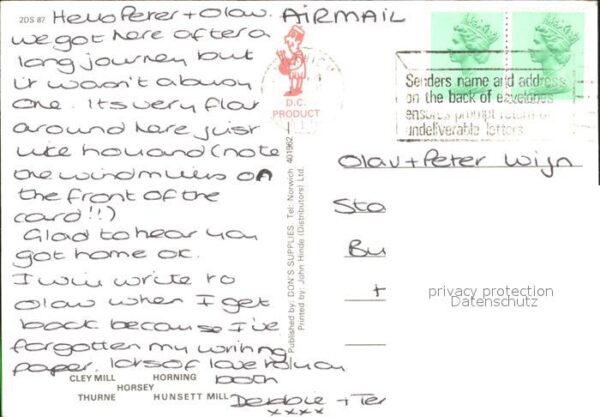 2DS 87
Hello Peter + Olav.
we got here after a
long journey but
it wasn't a boring
one. Its very flat
around here just
like holland (note
the windmills on
the front of the
card!!)
Glad to hear you
got home ok.
I will write to
Olav when I get
back because I've
forgotten my writing
paper. lots of love to you
both
Debbie + Ter
xxxx
CLEY MILL HORNING
HORSEY
THURNE HUNSETT MILL
D.C.
PRODUCT
Published by: DON'S SUPPLIES. Tel: Norwich 401962
Printed by: John Hinde (Distributors) Ltd.
AIRMAIL
Senders name and address
on the back of envelopes
ensures prompt return of
undeliverable letters
Olav + Peter Wijn
Sta
Bu
+
privacy protection
Datenschutz